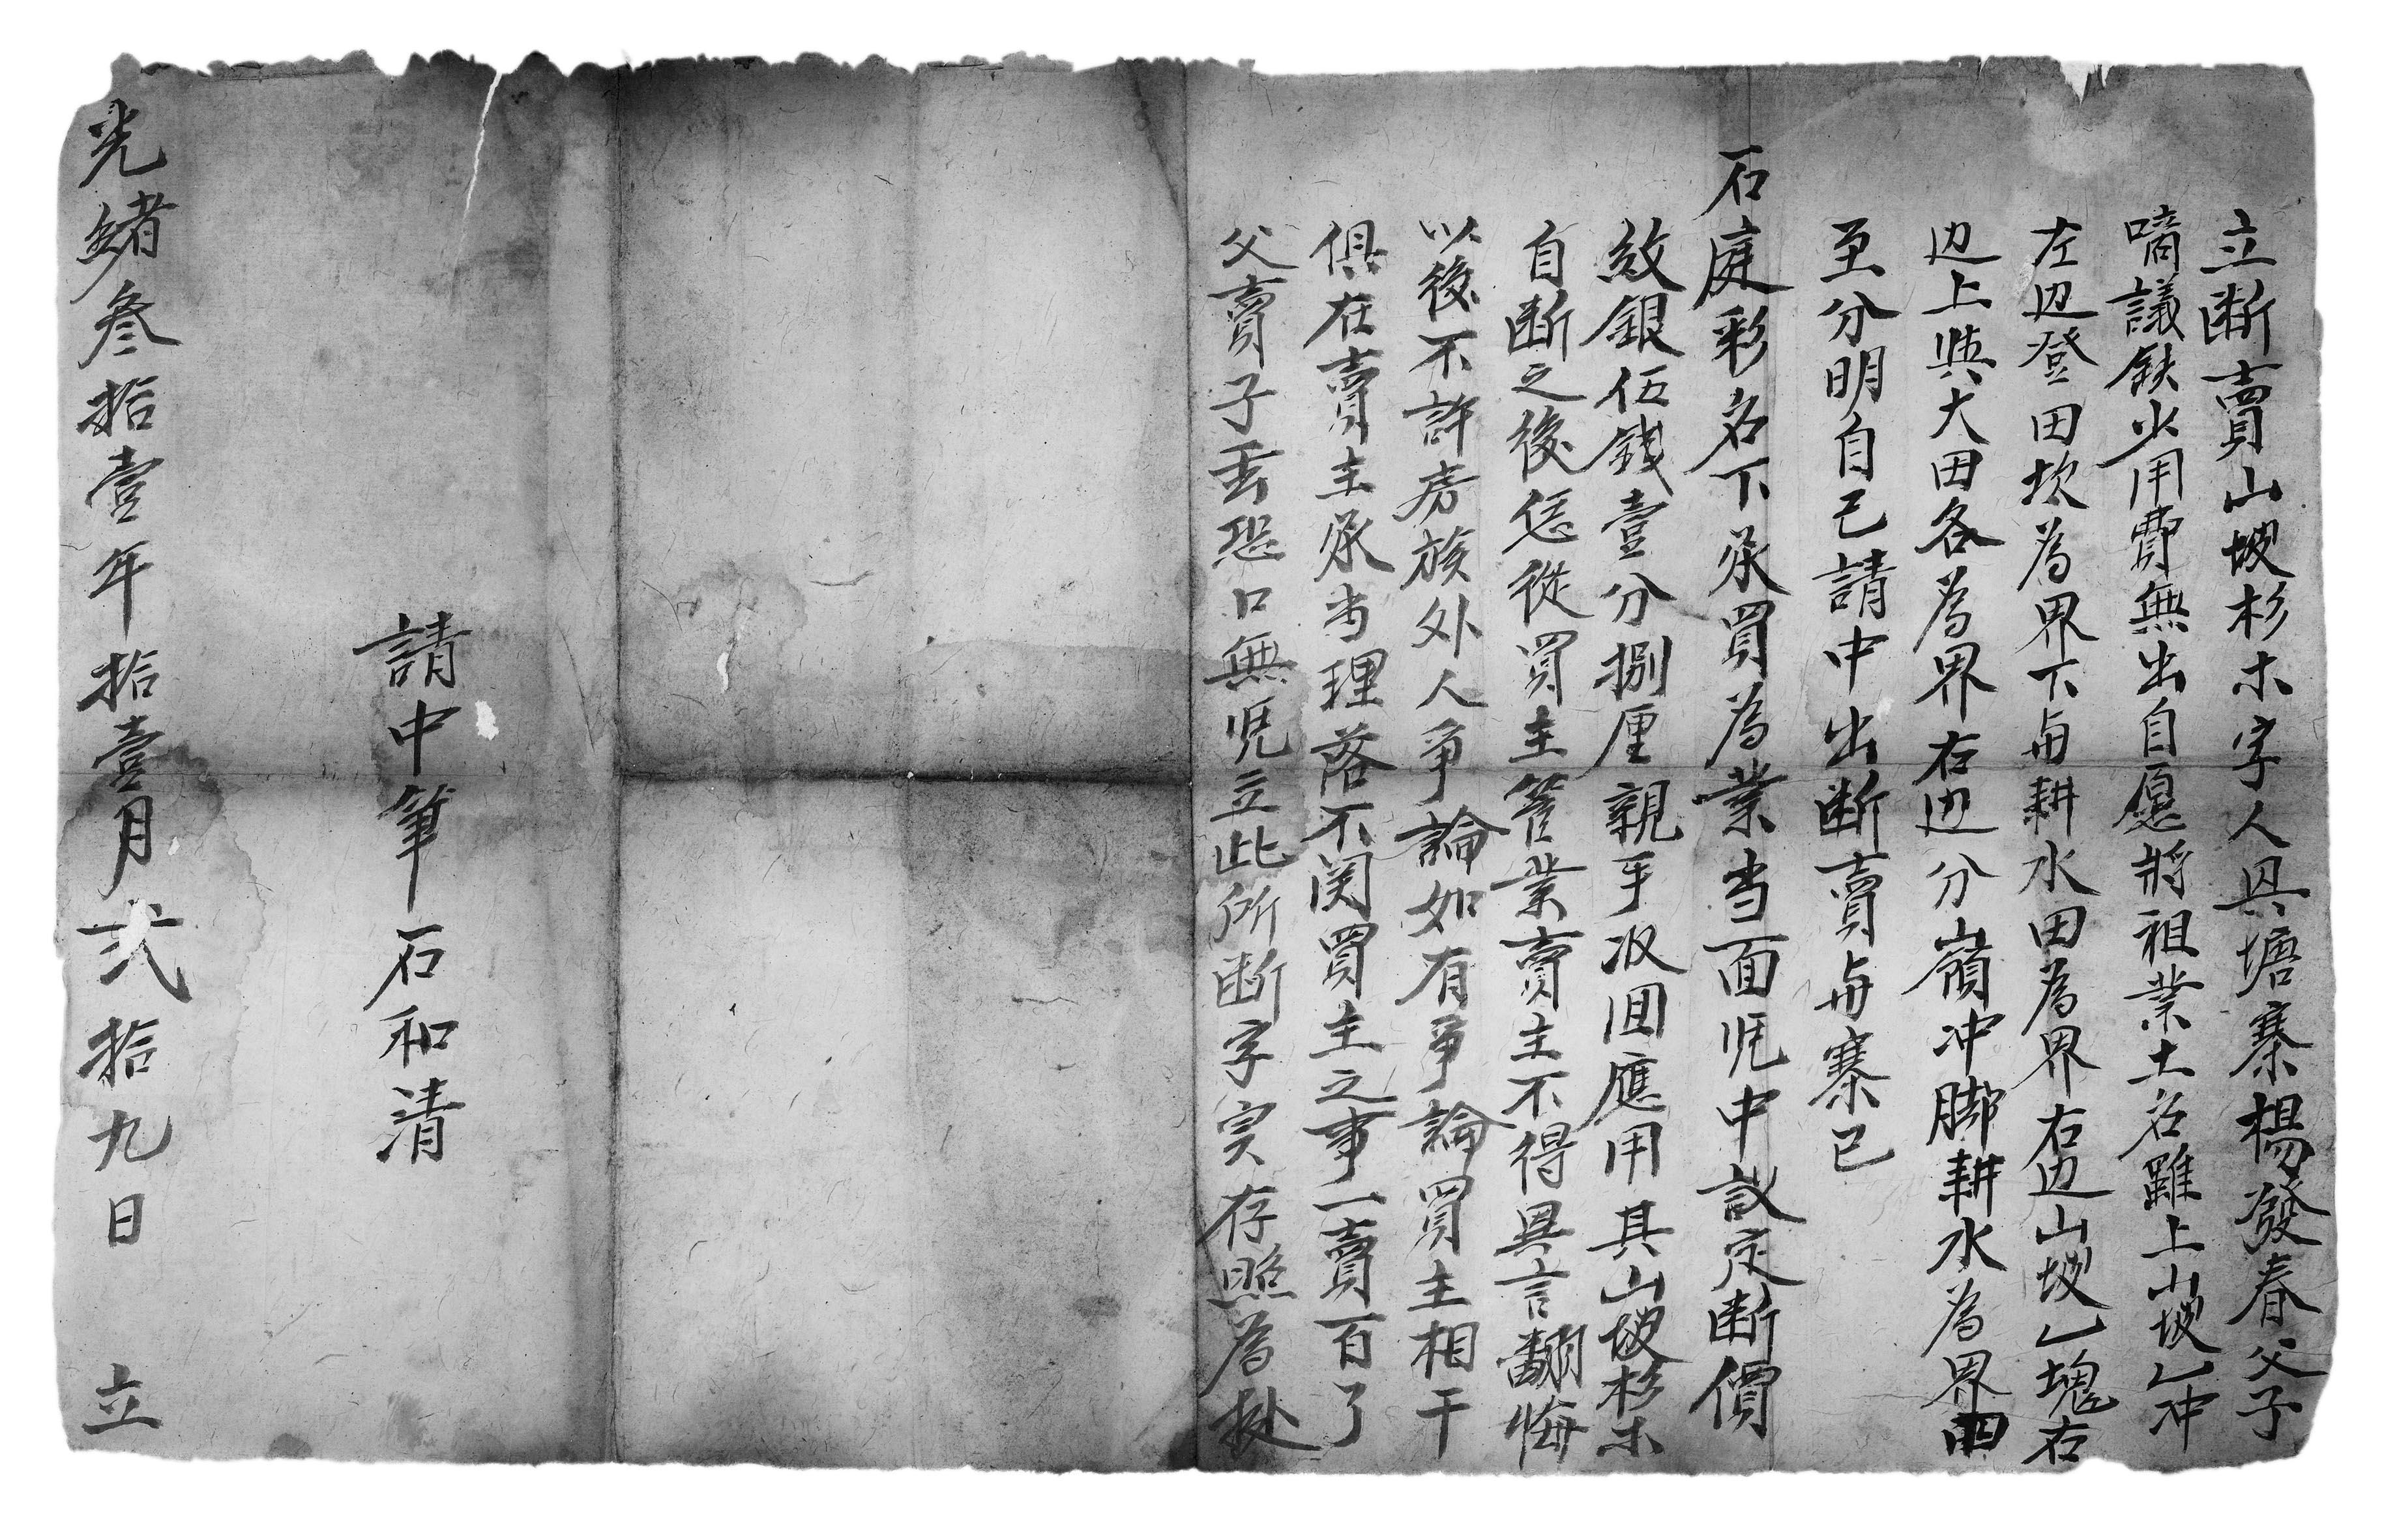 立断賣山坡杉木字人具塘寨楊發春父子
啇議鈌少用費無出自愿將祖業土名雖上山坡乚冲
左边登田坎為界下与耕水田為界右边山坡乚塊右
边上與大田各為界右边分嶺冲脚耕水為界四
至分明自己請中出断賣与寨已
石庭彩名下承買為業当面凭中議定断價
紋銀伍錢壹分捌厘親手収回應用其山坡杉木
自断之後恁從買主管業賣主不得異言翻悔
以後不許房族外人争論如有争論買主相干
俱在賣主承当理落不関買主之事一賣百了
父賣子丢恐口無凭立此所断字实存照為処
請中筆石和清
光緒叁拾壹年拾壹月弍拾九日 立